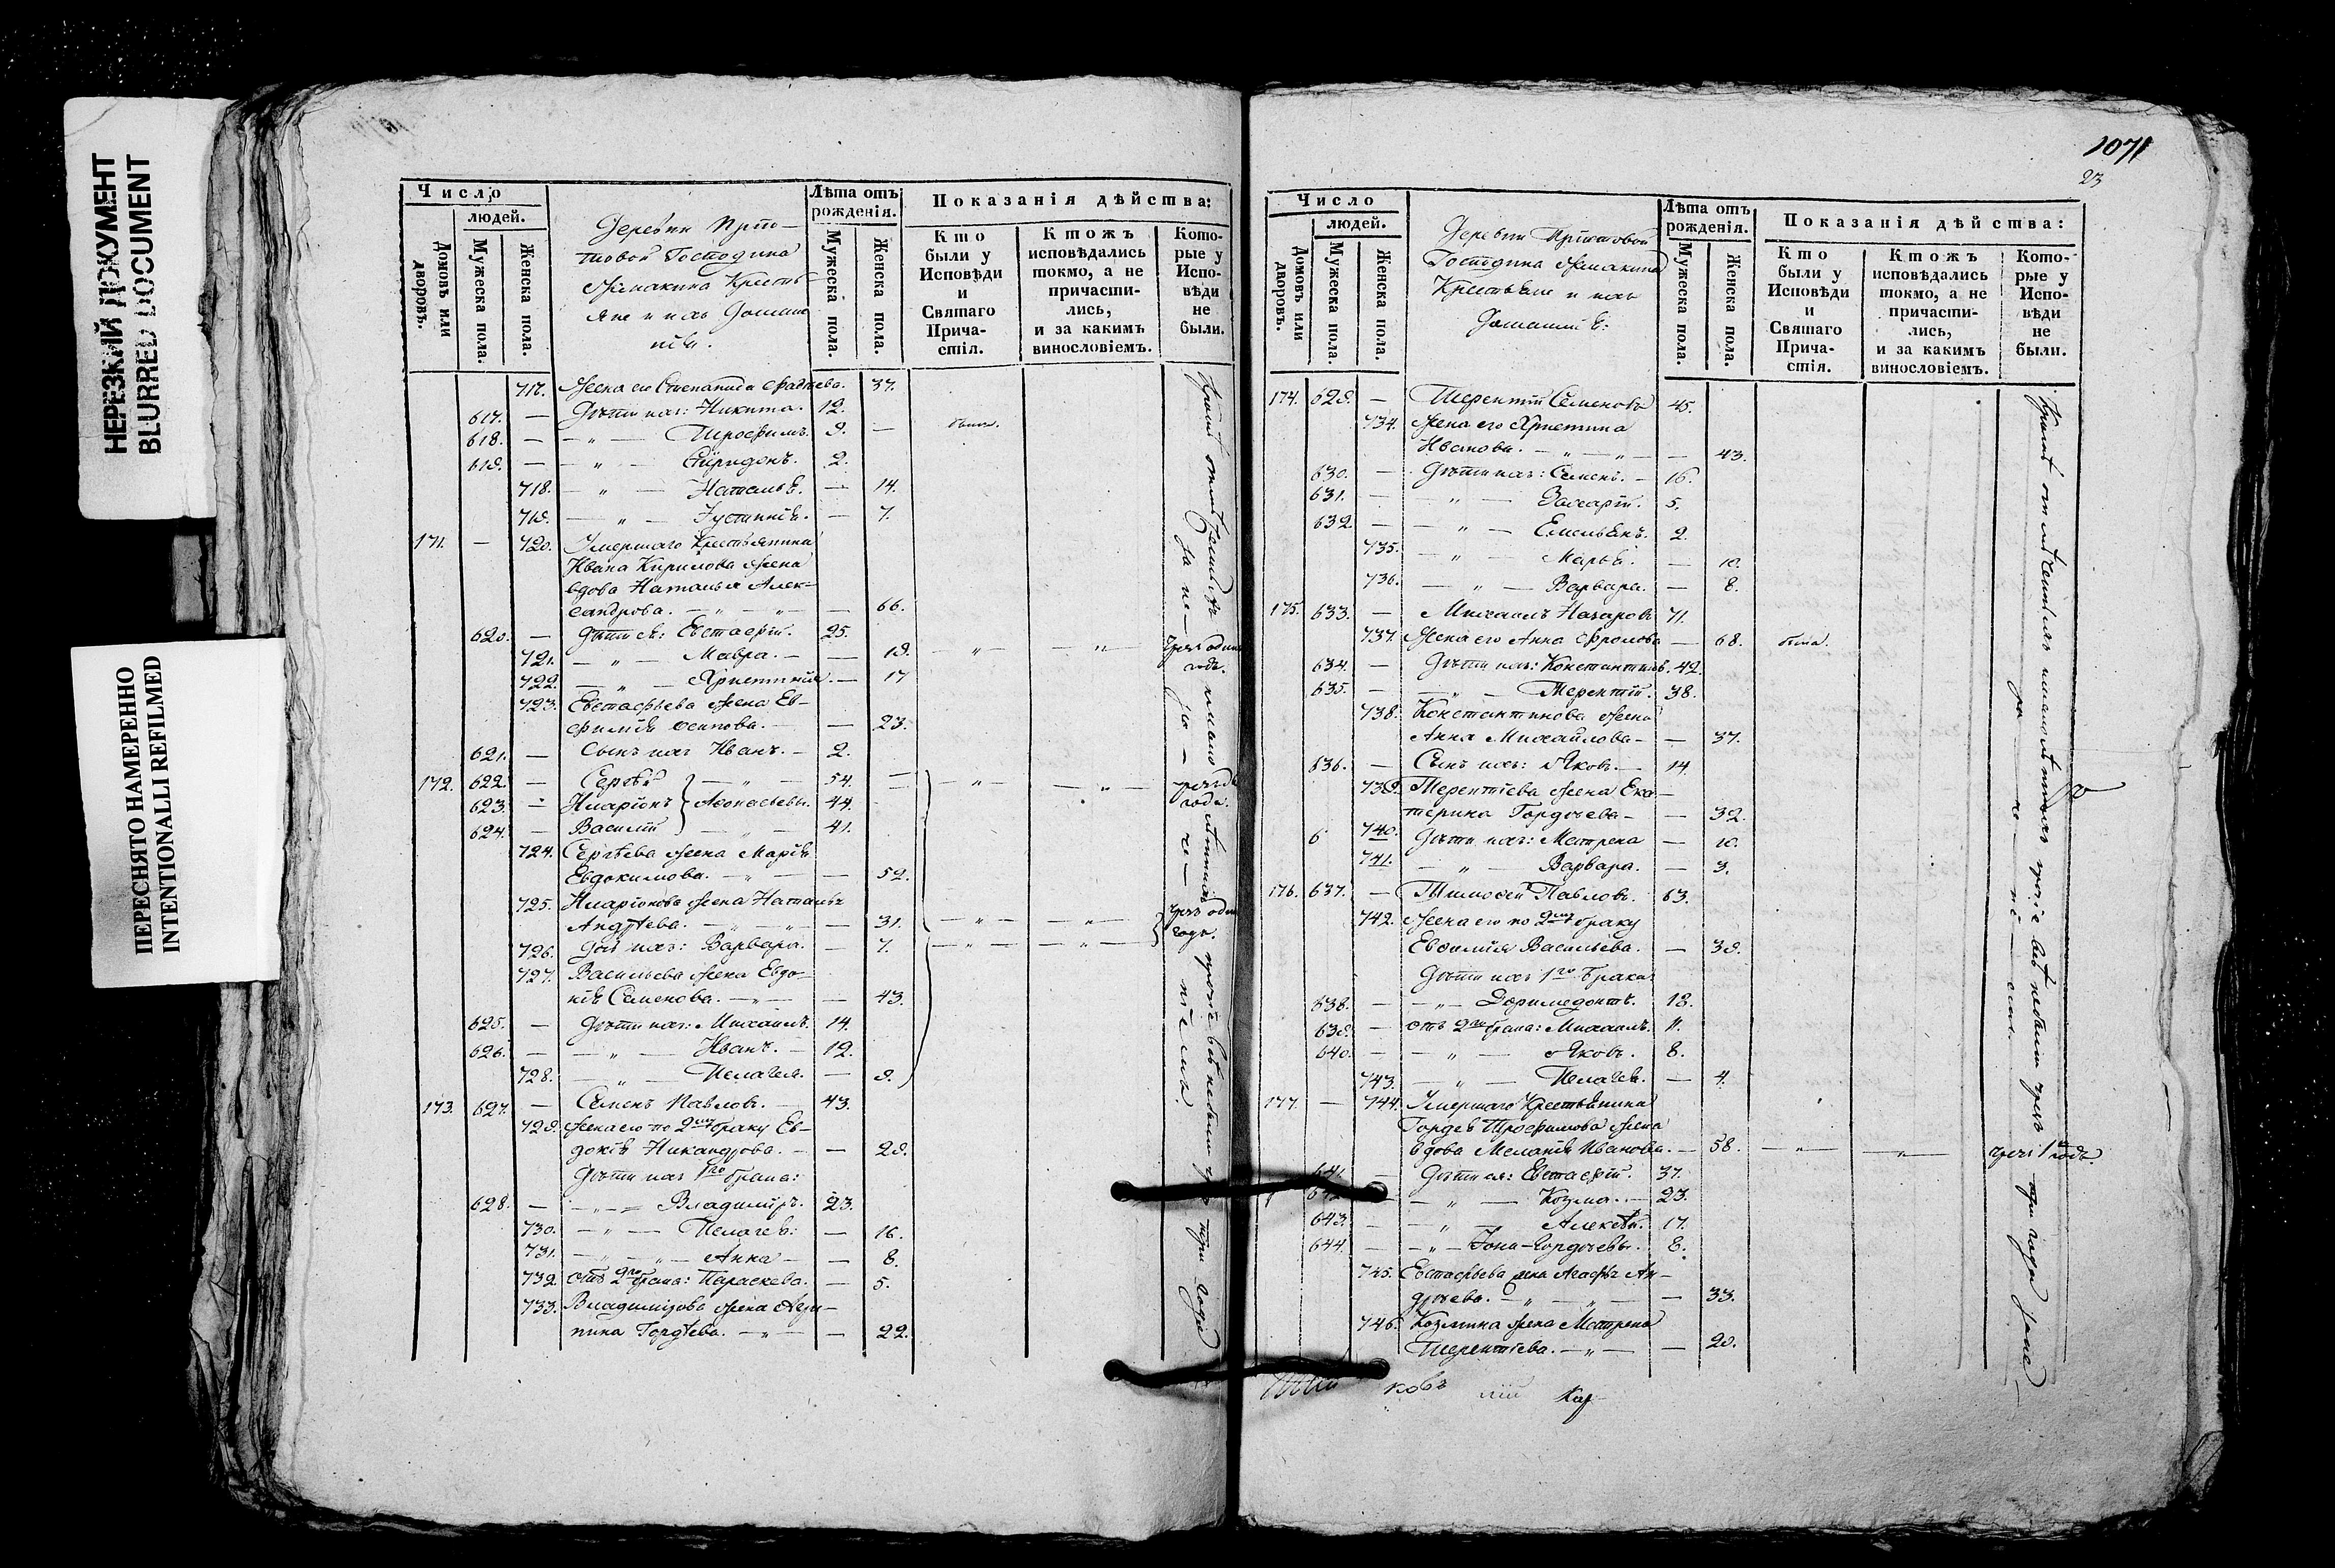 НЕРЕЗКИЙ ДОКУМЕНТ
BLURRED DOCUMENT
ПЕРЕСНЯТО НАМЕРЕННО
INTENTIONALLI REFILMED
Число
людей.
Домовъ или дворовъ.
Мужеска пола.
Женска пола.
Деревни
Господина
Кресть-
яне и ихъ Домаш
нія.
Лѣта отъ рожденія.
Мужеска пола.
Женска пола.
Показанія дѣйства:
Кто были у Исповѣди и Святаго Прича-стія.
Ктожъ исповѣдались токмо, а не причасти-лись, и за какимъ винословіемъ.
Кото-рые у Испо-вѣди не были.
717. Жена его Степанида 37.
617. — Дѣти ихъ: Никита. 12.
618. — — „ — Трофимъ. 9. —
619. — — „ — Спиридонъ. 2.
718. — „ — Наталья. — 14.
719. — „ — Устинія. — 7.
171. — 720. Умершаго Крестьянина
Ивана Кирилова жена
вдова Наталья Алек-
сандрова. — „ — „ — — 66.
620. — Дѣти ея: Евстафій. 25.
721. — „ — Мавра. — — 19. — „ — — „ — чрезъ одинъ
722. — „ — Христинія. — 17 годъ.
723. Евстафьева жена Ев-
фимія Осипова. — — 23.
621. — Сынъ ихъ Иванъ. — 2.
172. 622. — Сергѣй — „ — 54. — — „ — — „ —
623. — Иларіонъ Аѳонасьевы. 44.
624. — Василій — „ — 41.
724. Сергѣева жена Марія
Евдокимова. — „ — — 52.
725. Иларіонова жена Наталья
Андрѣева. — „ — „ — — 31. — „ — — „ — чрезъ одинъ
726. Дочь ихъ: Варвара. — 7. — „ — — „ — годъ.
727. Васильева жена Евдо-
кія Семенова. — „ — — 43.
625. — Дѣти ихъ: Михаилъ. 14.
626. — — „ — Иванъ. — 12.
728. — „ — Пелагея. — 9.
173. 627. — Семенъ Павловъ. — 43.
729. Жена его по 2му браку Ев-
докія Никандрова. — — 29.
Дѣти ихъ 1го брака:
628. — — „ — Владимиръ. 23.
730. — „ — Пелагея: — 16.
731. — „ — „ — Анна — — 8.
732. отъ 2го брака: Параскева. — 5.
733. Владимірова жена Агри-
пина Гордѣева. — „ — — 22.
1071
23
Число
людей.
Домовъ или дворовъ.
Мужеска пола.
Женска пола.
Деревни
Господина
Крестьяне и ихъ
Домашнія:
Лѣта отъ рожденія.
Мужеска пола.
Женска пола.
Показанія дѣйства:
Кто были у Исповѣди и Святаго Прича-стія.
Ктожъ исповѣдались токмо, а не причасти-лись, и за какимъ винословіемъ.
Кото-рые у Испо-вѣди не были.
174. 629. — Терентій Семеновъ 45.
734. Жена его Христина
Иванова. — „ — „ — — 43.
630. — Дѣти ихъ: Семенъ. — 16.
631. — — „ — Захарій. 5.
632. — — „ — Емельянъ. 2.
735. — „ — Марья. — 10.
736. — „ — Варвара. — 8.
175. 633. — Михаилъ Назаровъ 71.
737. Жена его Анна Фролова — 68. была.
634. — Дѣти ихъ: Константинъ. 42.
635. — — „ — Терентій. 38.
738. Константинова жена
Анна Михайлова — — 37.
636. — Сынъ ихъ: Яковъ. — 14.
739. Терентіева жена Ека-
терина Гордѣева — — 32.
6 740. Дѣти ихъ: Матрена — 10.
741. — „ — Варвара. — 3.
176. 637. — Тимофей Павловъ. 63.
742. Жена его по 2му браку
Евфимія Васильева. — 39.
Дѣти ихъ 1го брака
638. — — „ — Доримедонтъ. 18.
639. — отъ 2го брака: Михаилъ. 11.
640. — — „ — Яковъ. 8.
743. — „ — Пелагея. — 4.
177. — 744. Умершаго Крестьянина
Гордея Трофимова жена
вдова Меланія Иванова. — 58. — „ — — „ — чрезъ 1 годъ.
641. — Дѣти ея: Евстафій. 37.
642. — „ — Козма. — 23.
643. — — „ — Алексѣй. 17.
644. — — „ — Іона — Гордѣевы. 8.
745. Евстафьева жена Агафья Ан-
дреева. — „ — „ — — 33.
746. Козмина жена Матрена
Терентіева. — „ — — 20.